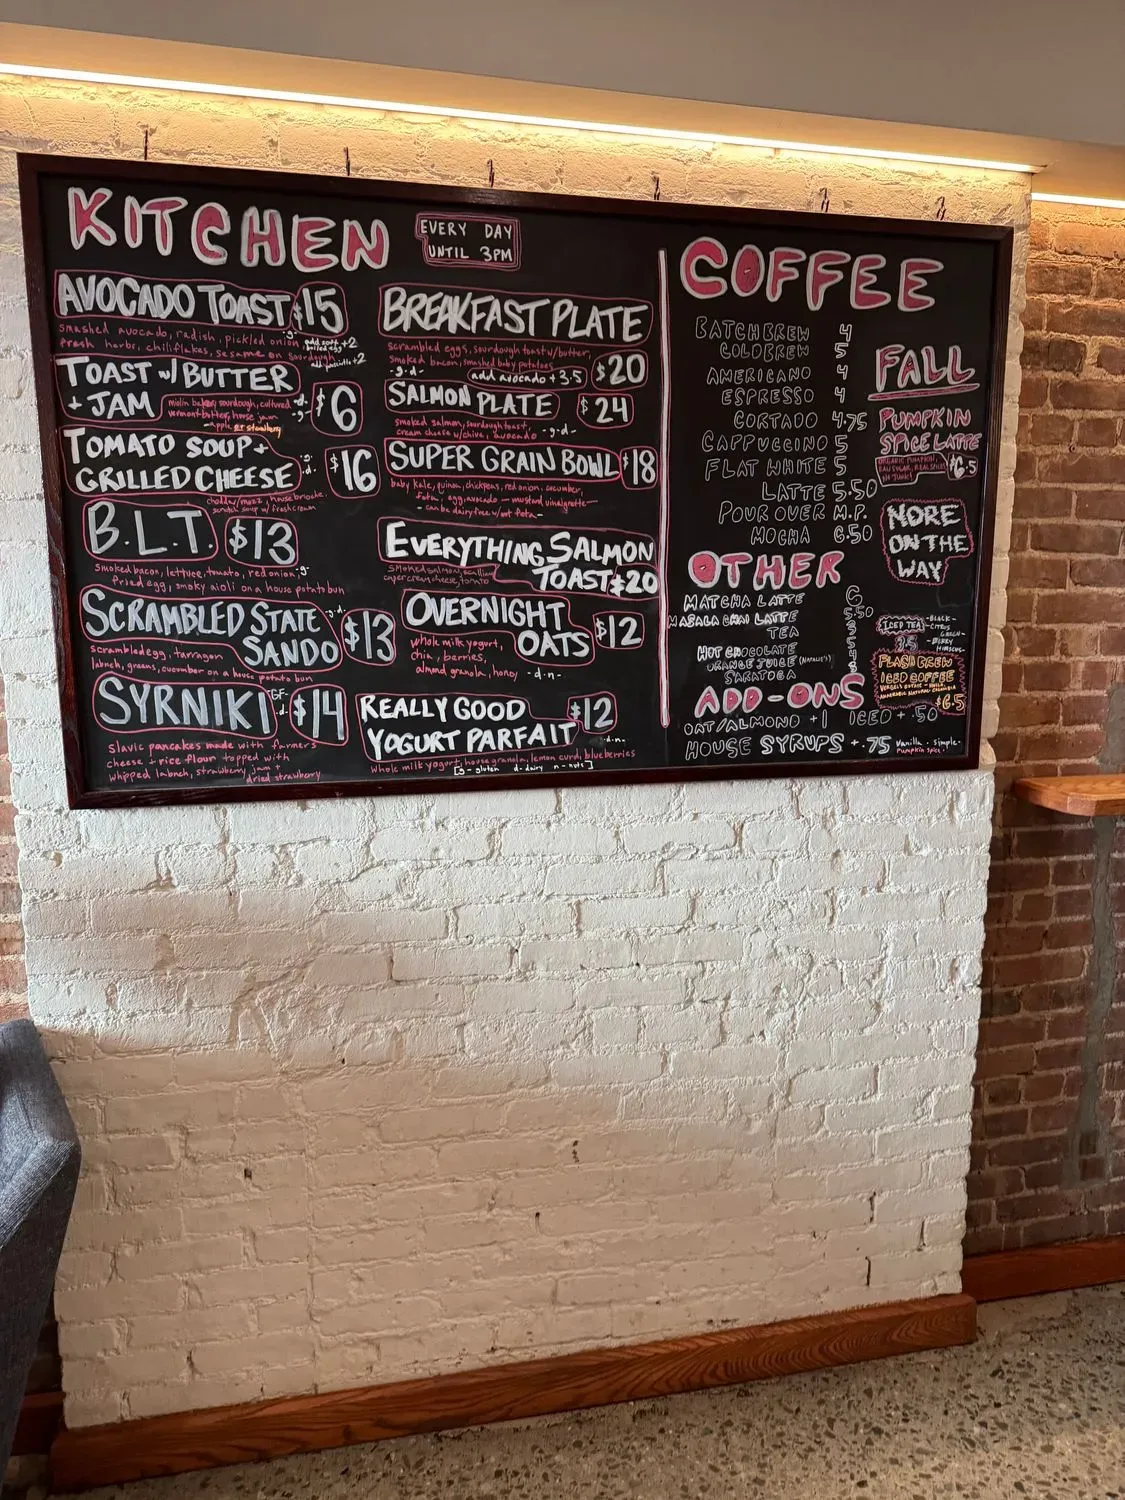 KITCHEN
EVERY DAY
UNTIL 3PM
AVOCADO TOAST $15
smashed avocado, radish, pickled onion -g-
fresh herbs, chili flakes, sesame on sourdough
add soft boiled egg +2
TOAST w/ BUTTER
+ JAM $6
sourdough, cultured
vermont butter, house jam
-apple or strawberry
-d-
-g-
TOMATO SOUP +
GRILLED CHEESE $16
cheddar/mozz, house brioche
soup w/ fresh cream
B.L.T. $13
smoked bacon, lettuce, tomato, red onion, -g-
fried egg, smoky aioli on a house potato bun
SCRAMBLED STATE -g-d-
SANDO $13
scrambled egg, tarragon
labneh, greens, cucumber on a house potato bun
SYRNIKI GF -d- $14
slavic pancakes made with farmers
cheese + rice flour topped with
whipped labneh, strawberry jam +
dried strawberry
BREAKFAST PLATE
scrambled eggs, sourdough toast w/ butter,
smoked bacon, smashed baby potatoes
-g-d- add avocado +3.5 $20
SALMON PLATE $24
smoked salmon, sourdough toast,
cream cheese w/ chive, avocado -g-d-
SUPER GRAIN BOWL $18
baby kale, quinoa, chickpeas, red onion, cucumber,
feta, egg, avocado - mustard vinaigrette -
- can be dairy free w/out feta -
EVERYTHING SALMON
TOAST $20
smoked salmon, scallion
caper cream cheese, tomato
OVERNIGHT
OATS $12
whole milk yogurt,
chia, berries,
almond granola, honey -d-n-
REALLY GOOD
YOGURT PARFAIT $12
-d-n-
whole milk yogurt, house granola, lemon curd, blueberries
[g - gluten d - dairy n - nuts]
COFFEE
BATCH BREW 4
COLD BREW 5
AMERICANO 4
ESPRESSO 4
CORTADO 4.75
CAPPUCCINO 5
FLAT WHITE 5
LATTE 5.50
POUR OVER M.P.
MOCHA 6.50
FALL
PUMPKIN
SPICE LATTE
ORGANIC PUMPKIN,
RAW SUGAR, REAL SPICES
NO JUNK! $6.5
MORE
ON THE
WAY
OTHER
MATCHA LATTE 6
MASALA CHAI LATTE 5.50
TEA
HOT CHOCOLATE
ORANGE JUICE (NATALIE'S)
SARATOGA
ICED TEA
-BLACK-
-CITRUS
GREEN-
-BERRY
HIBISCUS-
FLASH BREW
ICED COFFEE
ANAEROBIC NATURAL COLOMBIA
$6.5
ADD-ONS
OAT/ALMOND +1 ICED +.50
HOUSE SYRUPS +.75 vanilla · simple ·
pumpkin spice